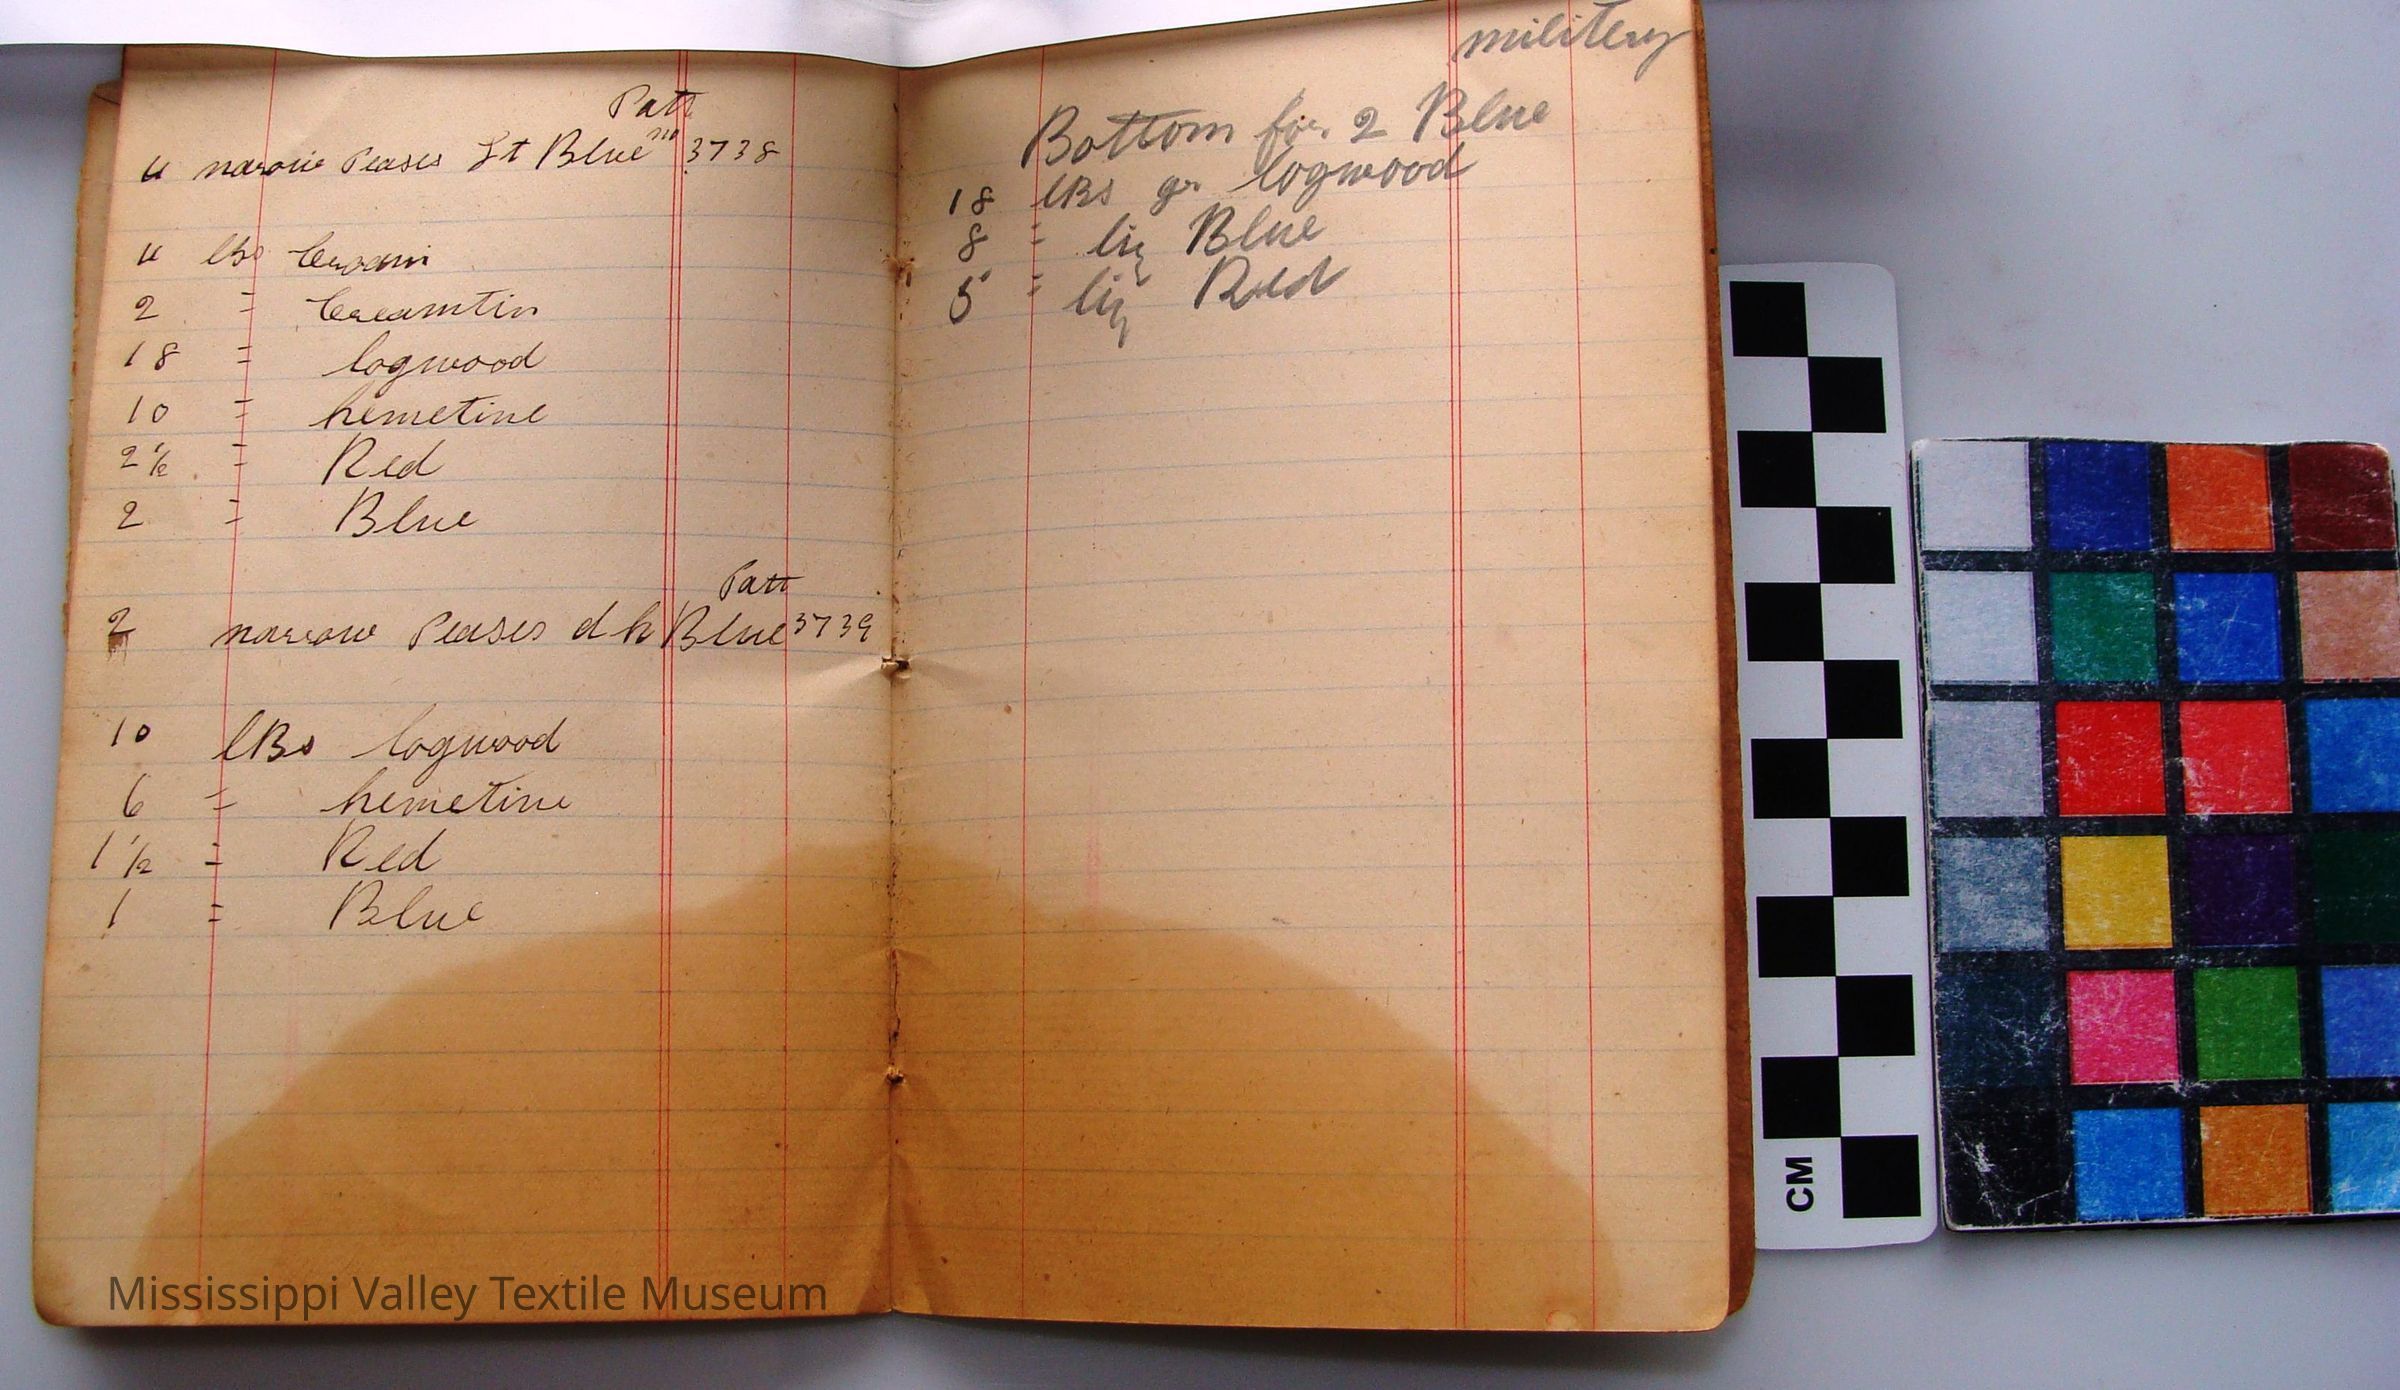 Patt
4 narow Peases Lt Blue no 3738
4 lbs Croam
2 = Creamtin
18 = logwood
10 = hemetine
2 1/2 = Red
2 = Blue
Patt
2 narrow Peases dk Blue 3739
10 lBs logwood
6 = hemetine
1 1/2 = Red
1 = Blue
militery
Bottom for 2 Blue
18 lBs gr logwood
8 = liq Blue
5 = liq Red
CM
Mississippi Valley Textile Museum